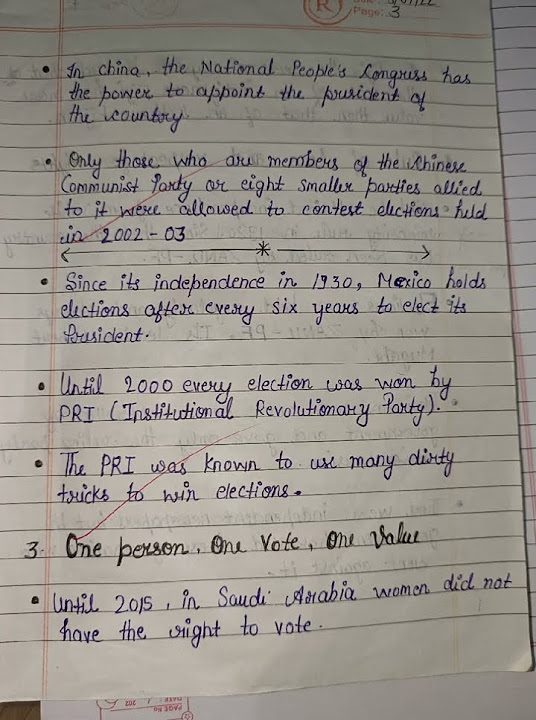 R
Page: 3
• In china, the National People's Congress has
the power to appoint the president of
the country
• Only those who are members of the Chinese
Communist Party or eight smaller parties allied
to it were allowed to contest elections held
in 2002-03
• Since its independence in 1930, Mexico holds
elections after every six years to elect its
President.
• Until 2000 every election was won by
PRI (Institutional Revolutionary Party).
• The PRI was known to use many dirty
tricks to win elections.
3. One person, One Vote, One Value
• Until 2015, in Saudi Arabia women did not
have the right to vote.